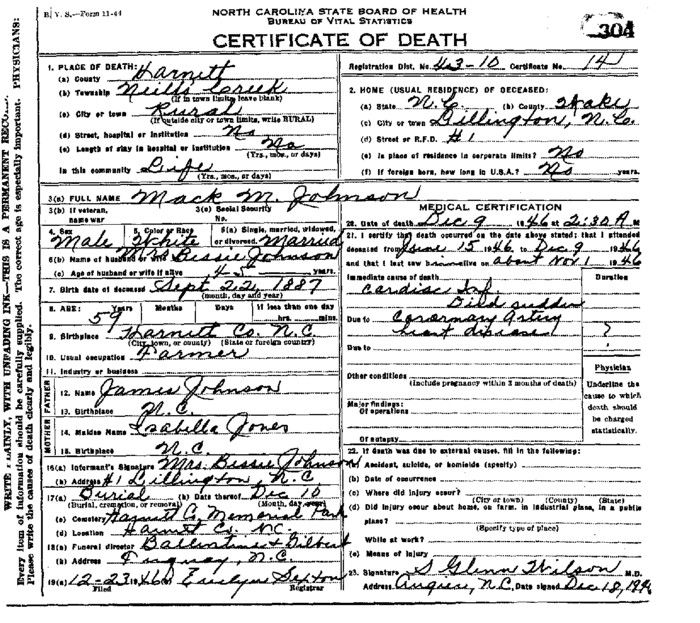 B. V. S.—Form 11-44
NORTH CAROLINA STATE BOARD OF HEALTH
BUREAU OF VITAL STATISTICS
CERTIFICATE OF DEATH
304
Registration Dist. No. 43-10 Certificate No. 14
1. PLACE OF DEATH:
(a) County Harnett
(b) Township Neills Creek
(If in town limits leave blank)
(c) City or town Rural
(If outside city or town limits, write RURAL)
(d) Street, hospital or institution No
(e) Length of stay in hospital or institution No
(Yrs., mos., or days)
In this community Life
(Yrs., mos., or days)
2. HOME (USUAL RESIDENCE) OF DECEASED:
(a) State N.C. (b) County Wake
(c) City or town Lillington, N.C.
(d) Street or R.F.D. #1
(e) Is place of residence in corporate limits? No
(f) If foreign born, how long in U.S.A.? No years.
3(a) FULL NAME Mack M. Johnson
3(b) If veteran, name war
3(c) Social Security No.
4. Sex Male
5. Color or Race White
6(a) Single, married, widowed, or divorced. Married
6(b) Name of husband or wife Mrs Bessie Johnson
(c) Age of husband or wife if alive 45 years.
7. Birth date of deceased Sept 22, 1887
(month, day and year)
8. AGE: Years 59 Months Days If less than one day hrs. mins.
9. Birthplace Harnett Co. N.C.
(City, town, or county) (State or foreign country)
10. Usual occupation Farmer
11. Industry or business
FATHER
12. Name James Johnson
13. Birthplace N.C.
MOTHER
14. Maiden Name Isabella Jones
15. Birthplace N.C.
16(a) Informant's Signature Mrs. Bessie Johnson
(b) Address #1 Lillington, N.C
17(a) Burial (b) Date thereof Dec 10
(Burial, cremation, or removal) (Month, day, year)
(c) Cemetery Harnett Co. Memorial Park
(d) Location Harnett Co. N.C.
18(a) Funeral director Ballentine & Gilbert
(b) Address Fuquay, N.C.
19(a) 12-23 1946 (b) Evelyn Sexton
Filed Registrar
MEDICAL CERTIFICATION
20. Date of death Dec 9 1946 at 2:30 A M
21. I certify that death occurred on the date above stated; that I attended
deceased from June 15 1946 to Dec 9 1946
and that I last saw him alive on about Nov 1 1946
Immediate cause of death Duration
Cardiac Inf.
Died sudden
Due to Coronary Artery
heart disease ?
Due to
Other conditions
(Include pregnancy within 3 months of death)
Major findings:
Of operations
Of autopsy
Physician
Underline the cause to which death should be charged statistically.
22. If death was due to external causes, fill in the following:
(a) Accident, suicide, or homicide (specify)
(b) Date of occurrence
(c) Where did injury occur?
(City or town) (County) (State)
(d) Did injury occur about home, on farm, in industrial place, in a public place?
(Specify type of place)
While at work?
(e) Means of injury
23. Signature S Glenn Wilson M.D.
Address Angier, N.C. Date signed Dec 18, 1946
WRITE PLAINLY, WITH UNFADING INK—THIS IS A PERMANENT
Every item of information should be carefully supplied. The correct age is especially important. PHYSICIANS:
Please write the causes of death clearly and legibly.